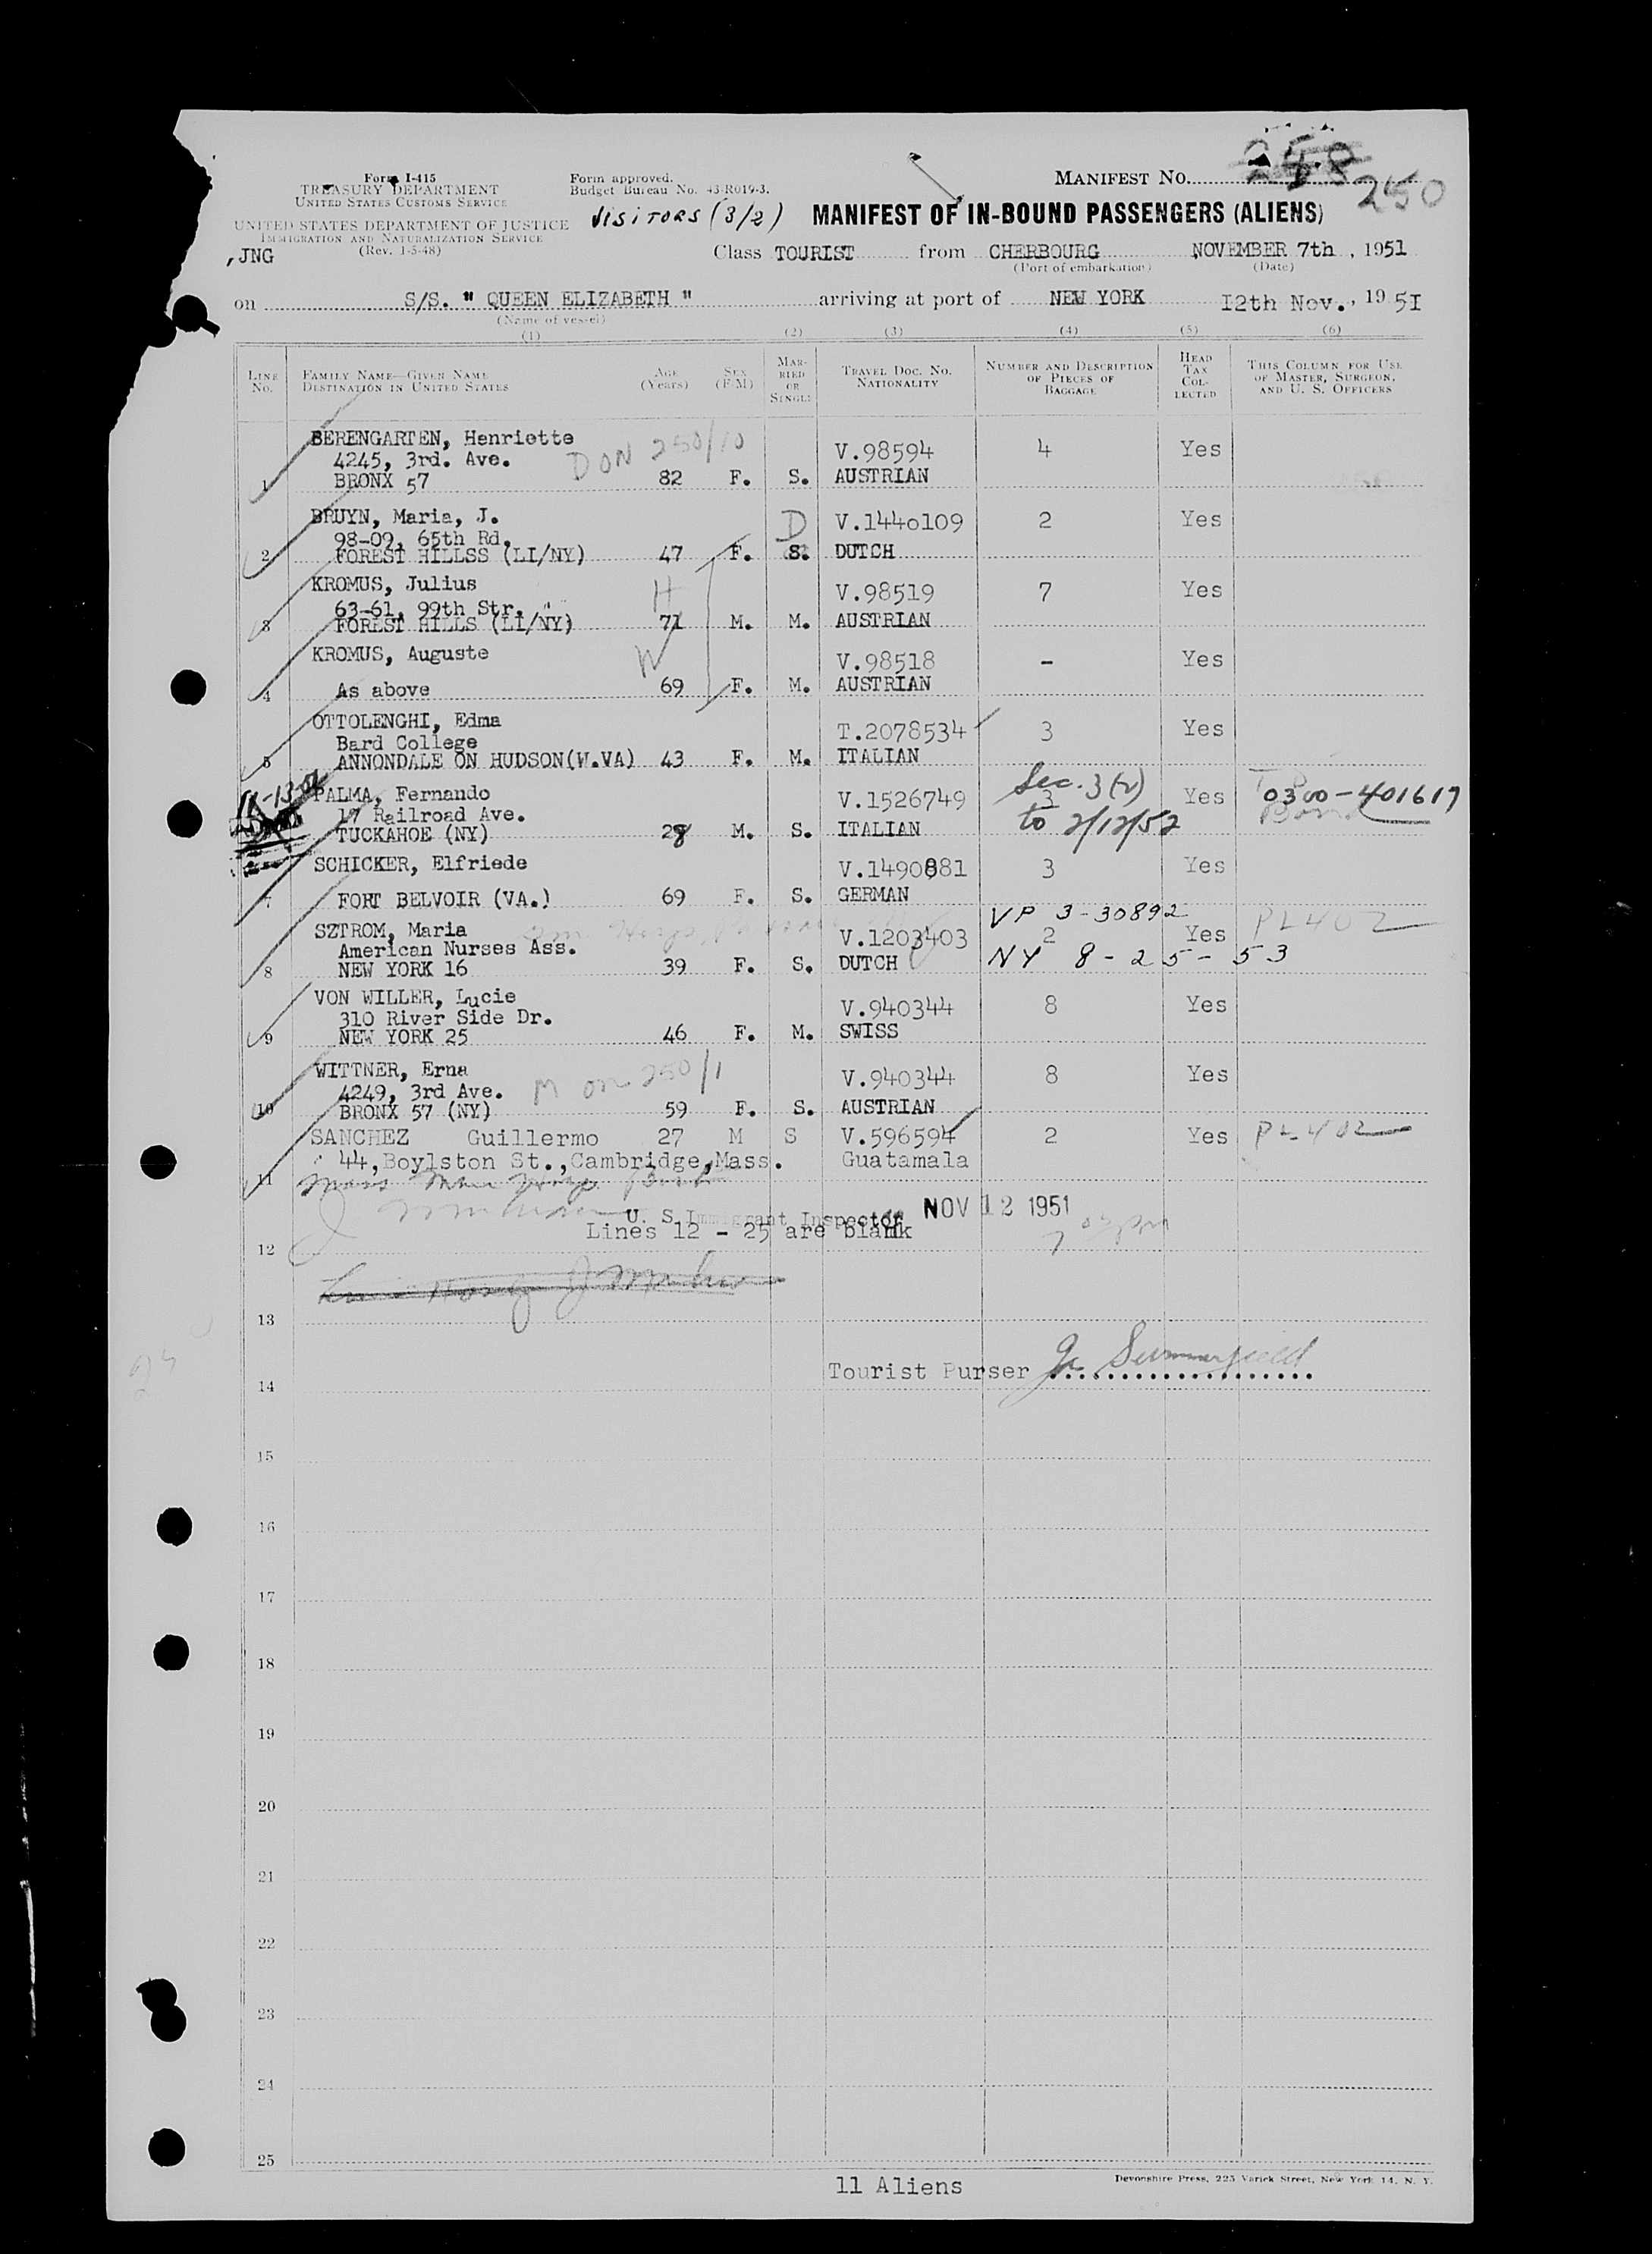 Form I-415
TREASURY DEPARTMENT
UNITED STATES CUSTOMS SERVICE
UNITED STATES DEPARTMENT OF JUSTICE
IMMIGRATION AND NATURALIZATION SERVICE
(Rev. 1-5-48)
Form approved.
Budget Bureau No. 43-R019-3.
VISITORS (3/2)
MANIFEST NO. 258
250
MANIFEST OF IN-BOUND PASSENGERS (ALIENS)
,JNG
Class TOURIST from CHERBOURG NOVEMBER 7th , 1951
(Port of embarkation) (Date)
on S/S. " QUEEN ELIZABETH " arriving at port of NEW YORK 12th Nov. , 19 51
(Name of vessel)
(1) (2) (3) (4) (5) (6)
LINE NO. FAMILY NAME—GIVEN NAME DESTINATION IN UNITED STATES AGE (Years) SEX (F-M) MARRIED OR SINGLE TRAVEL DOC. NO. NATIONALITY NUMBER AND DESCRIPTION OF PIECES OF BAGGAGE HEAD TAX COLLECTED THIS COLUMN FOR USE OF MASTER, SURGEON, AND U. S. OFFICERS
BERENGARTEN, Henriette V.98594 4 Yes
4245, 3rd. Ave. D ON 250/10
1 BRONX 57 82 F. S. AUSTRIAN
BRUYN, Maria, J. D V.1440109 2 Yes
98-09, 65th Rd.
2 FOREST HILLSS (LI/NY) 47 F. S. DUTCH
KROMUS, Julius H V.98519 7 Yes
63-61, 99th Str. "
3 FOREST HILLS (LI/NY) 71 M. M. AUSTRIAN
KROMUS, Auguste W V.98518 - Yes
4 As above 69 F. M. AUSTRIAN
OTTOLENGHI, Edma T.2078534 3 Yes
Bard College
5 ANNONDALE ON HUDSON(W.VA) 43 F. M. ITALIAN
PALMA, Fernando V.1526749 Sec. 3(2) 3 Yes 0300-401617
17 Railroad Ave. Bond
TUCKAHOE (NY) 28 M. S. ITALIAN to 2/12/52
SCHICKER, Elfriede V.1490881 3 Yes
7 FORT BELVOIR (VA.) 69 F. S. GERMAN
VP 3-30892
SZTROM, Maria V.1203403 2 Yes PL 402
American Nurses Ass.
8 NEW YORK 16 39 F. S. DUTCH NY 8-25-53
VON WILLER, Lucie V.940344 8 Yes
310 River Side Dr.
9 NEW YORK 25 46 F. M. SWISS
WITTNER, Erna V.940344 8 Yes
4249, 3rd Ave. M on 250/1
10 BRONX 57 (NY) 59 F. S. AUSTRIAN
SANCHEZ Guillermo 27 M S V.596594 2 Yes PL 402
44,Boylston St.,Cambridge,Mass. Guatamala
11
U. S. Immigrant Inspector NOV 12 1951
Lines 12 - 25 are blank
12
13
Tourist Purser
14
15
16
17
18
19
20
21
22
23
24
25
11 Aliens
Devonshire Press, 225 Varick Street, New York 14, N. Y.